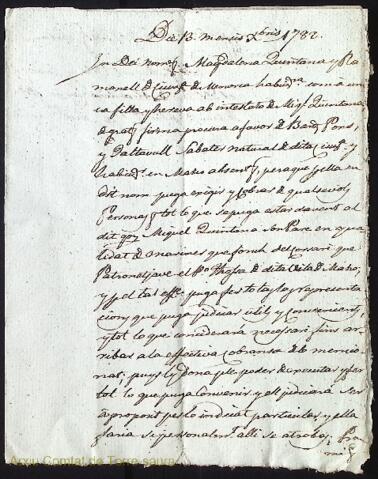 Die 13 mensis Xbris 1782.
In Dei nom. Magdalena Quintana y Ra
manell de Ciut. de Menorca habid. com à un
ica filla y hereva ab intestato de Miq. Quintana
de grat firma procura a favor de Bar. Pons,
y Taltavull Sabater natural de dita Ciut. y
habid. en Maho absent, pera que p. ella en
dit nom puga exigir y cobrar de qualsevol
Persona tot lo que se puga estar devent al
dit q. Miquel Quintana son Pare en qua
lidat de mariner que fonch del corsari que
Patronejave el de dita Vila de Maho,
y p. el tal efe. puga fer totas las representa
cions que puga judicar utils y convenients
y tot lo que considerará necessari fins ar
ribar a la effectiva cobransa de lo mencio
nat; puys ly dona ple poder de executar y fer
tot lo que puga convenir, y ell judicará ser
a propont per lo indicat particular, y ella
faria si personalm. alli se atrobas, Pro
mi
Arxiu Comtat de Torre-saura